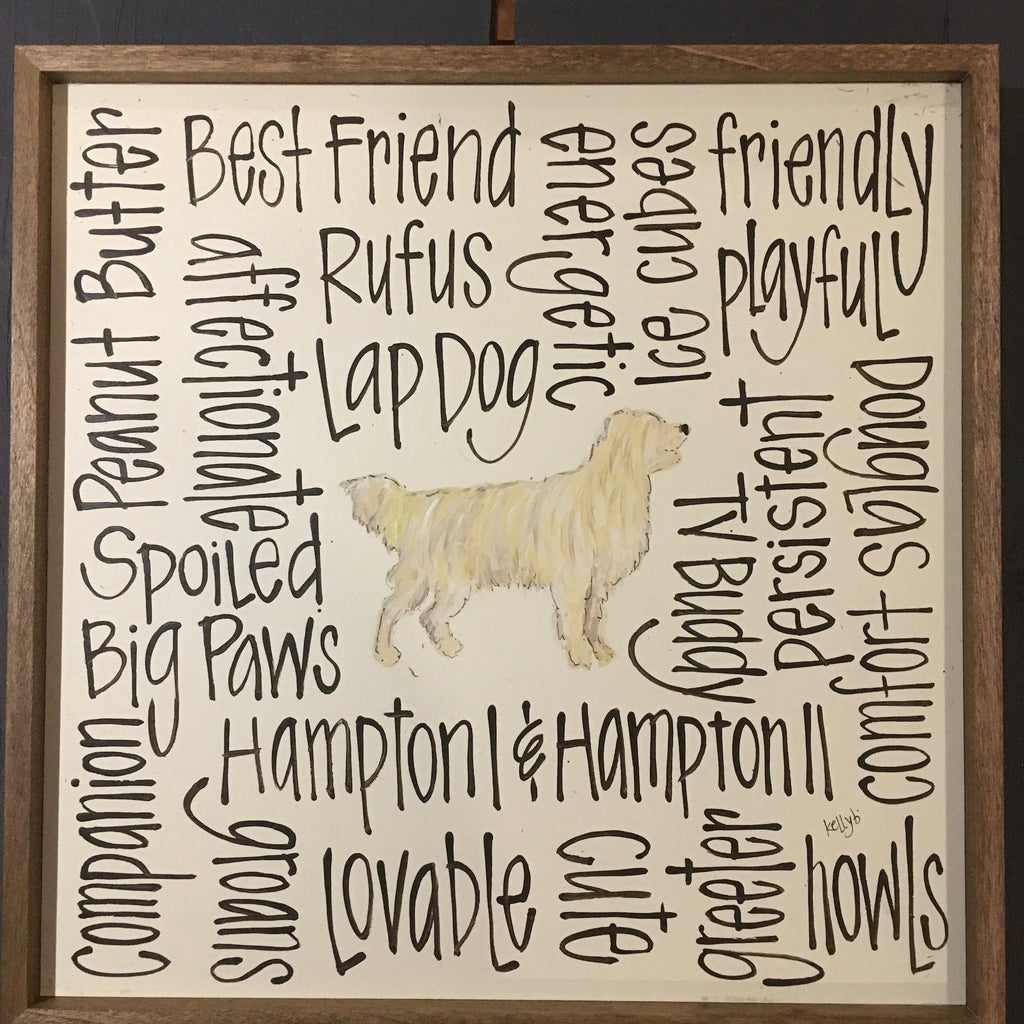 Peanut Butter
Best Friend
energetic
Ice cubes
friendly
affectionate
Rufus
playful
Lap Dog
Spoiled
TV Buddy
persistent
comfort sblgnoD
Big Paws
Hampton I & Hampton II
companion
groans
Lovable
cute
greeter
howls
kellyb